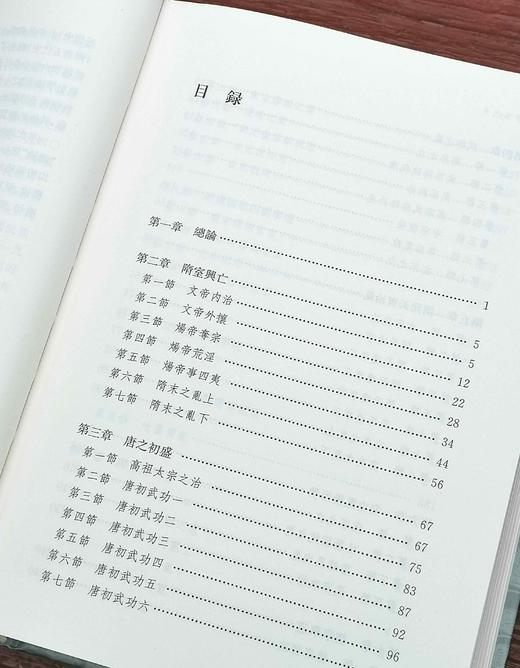 目 録
第一章 總論 1
第二章 隋室興亡 5
第一節 文帝内治 5
第二節 文帝外攘 12
第三節 煬帝奪宗 22
第四節 煬帝荒淫 28
第五節 煬帝事四夷 34
第六節 隋末之亂上 44
第七節 隋末之亂下 56
第三章 唐之初盛 67
第一節 高祖太宗之治 67
第二節 唐初武功一 75
第三節 唐初武功二 83
第四節 唐初武功三 87
第五節 唐初武功四 92
第六節 唐初武功五 96
第七節 唐初武功六